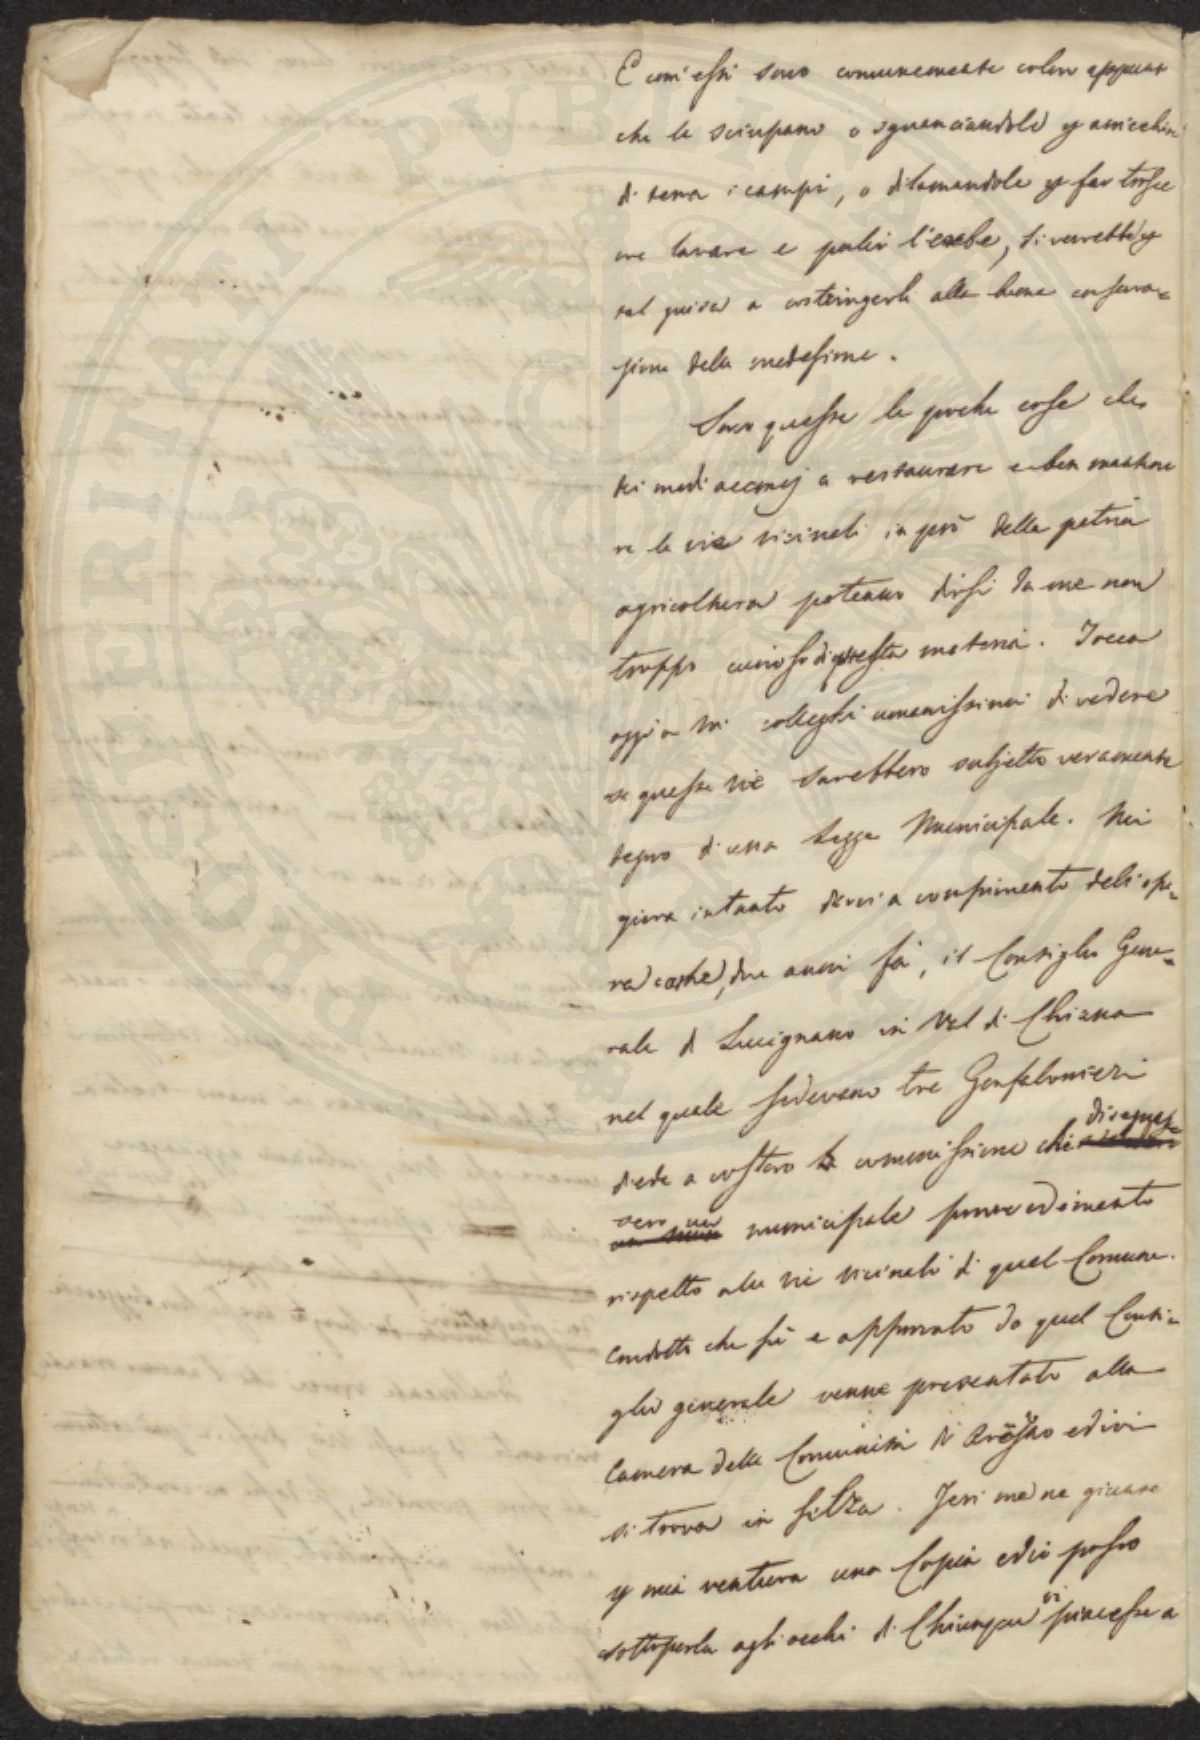 E com'essi sono comunemente coloro appunto
che le sciupano o sguanciandole p arricchire
di terra i campi, o dilamandole p far fosse
ove lavare e pulir l'erbe, si verrebbe p
tal guisa a costringerli alla buona conserva=
zione delle medesime.
Sono queste le poche cose che
sui modi acconcj a restaurare e ben mantene
re le vie vicinali in prò della patria
agricoltura poteano dirsi da me non
troppo curioso di questa materia. Tocca
oggi a Voi colleghi umanissimi di vedere
se queste vie sarebbero subjetto veramente
degno d'una Legge Municipale. Mi
giova intanto dirvi a compimento dell'ope=
ra come, due anni fa, il Consiglio Gene=
rale di Lucignano in Val di Chiana
nel quale sedevano tre Gonfalonieri
diede a costoro la commissione che disegnas=
sero un municipale provvedimento
rispetto alle vie vicinali di quel Comune.
Condotto che fù e approvato da quel Consi=
glio generale venne presentato alla
Camera delle Comunità di Arezzo ed ivi
si trova in filza. Jeri me ne giunse
p mia ventura una Copia ed io posso
sottoporla agli occhi di Chiunque vi piacesse a